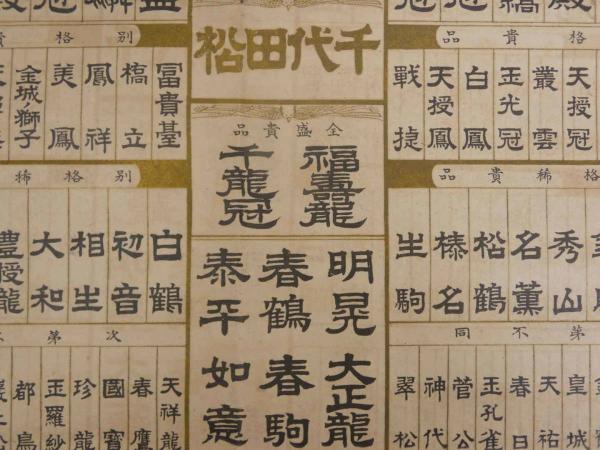 千代田松
全盛貴品
福壽龍
千龍冠
明晃
春鶴
泰平
大正龍
春駒
如意
格貴品
天授冠
叢雲
玉光冠
白鳳
天授鳳
戰捷
格稀貴品
秀山
名薫
松鶴
榛名
生駒
第不同
皇城
天祐
春日
玉孔雀
菅公
神代
翠松
別格貴
富貴臺
橋立
鳳祥
美鳳
金城獅子
別格稀
白鶴
初音
相生
大和
豊授龍
次第
天祥龍
春鷹
國寶
珍龍
玉羅紗
都鳥